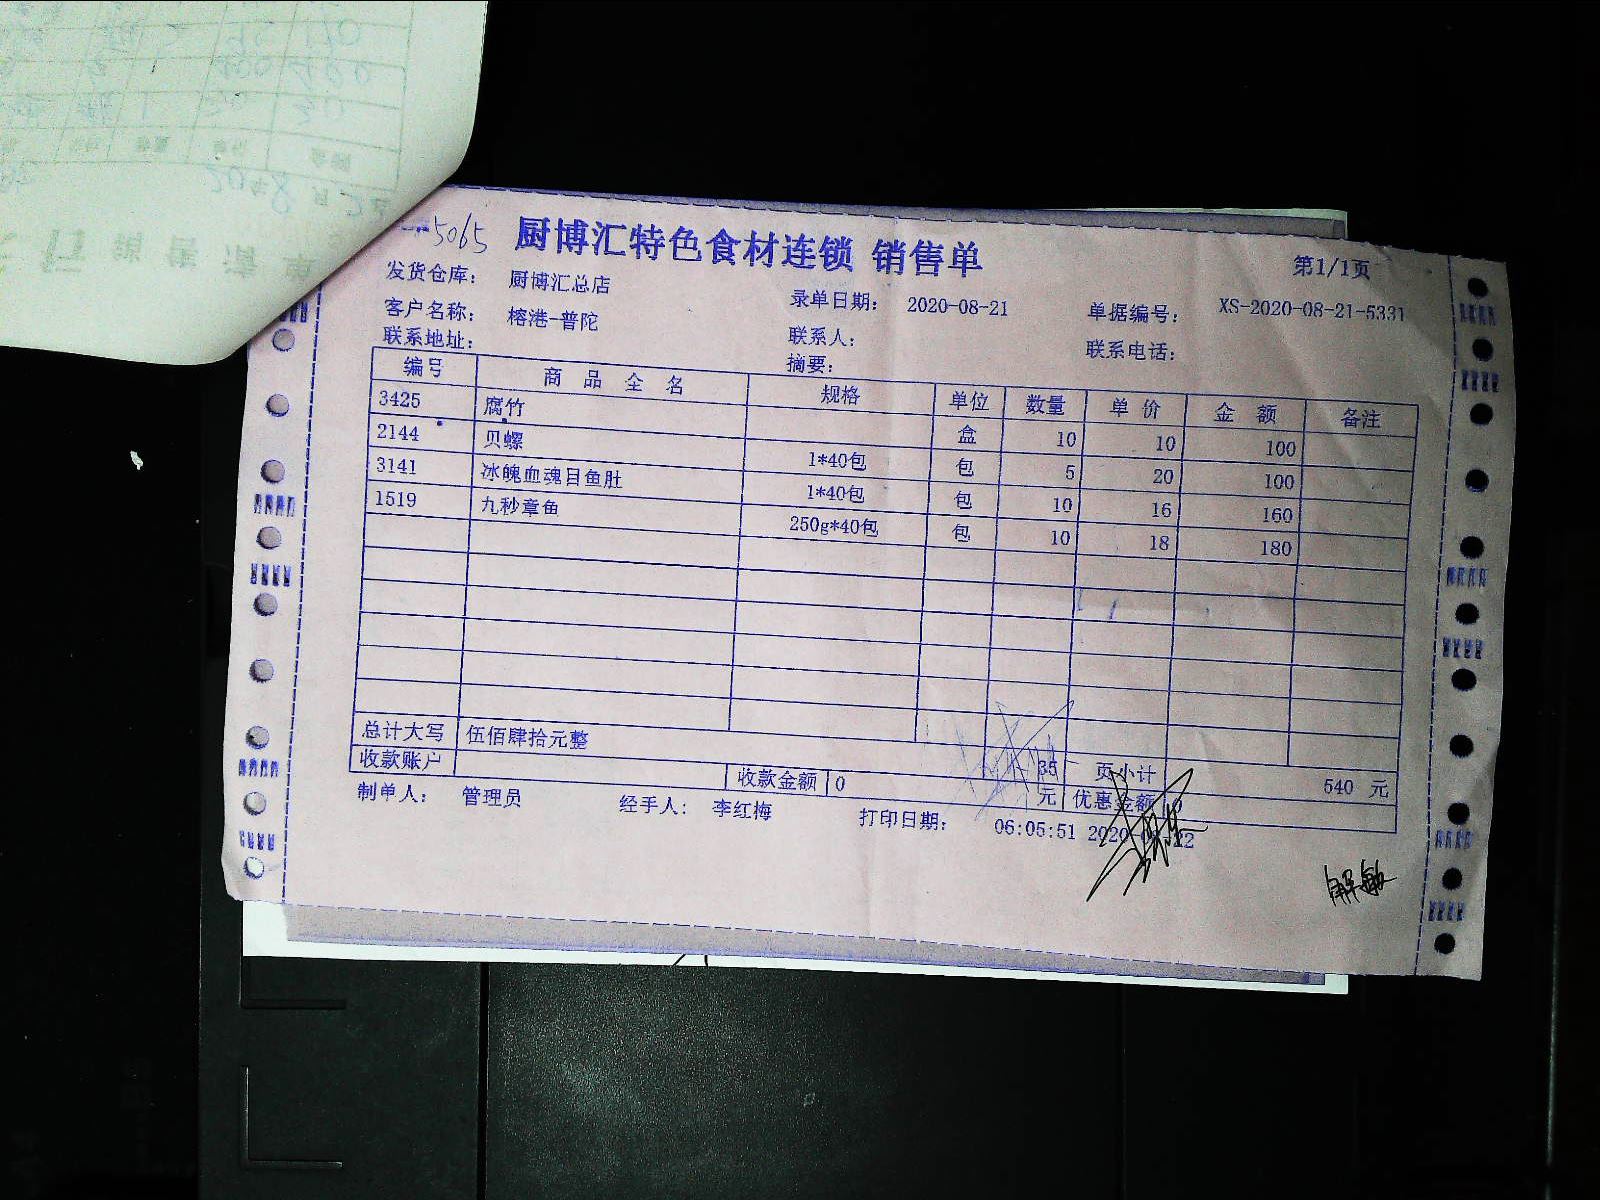 5065
厨博汇特色食材连锁 销售单
第1/1页
发货仓库： 厨博汇总店 录单日期： 2020-08-21 单据编号： XS-2020-08-21-5331
客户名称： 榕港-普陀 联系人： 联系电话：
联系地址： 摘要：
编号 商品全名 规格 单位 数量 单价 金额 备注
3425 腐竹 盒 10 10 100
2144 贝螺 1*40包 包 5 20 100
3141 冰魄血魂目鱼肚 1*40包 包 10 16 160
1519 九秒章鱼 250g*40包 包 10 18 180
总计大写 伍佰肆拾元整 35 页小计 540 元
收款账户 收款金额 0 元 优惠金额 0
制单人： 管理员 经手人： 李红梅 打印日期： 06:05:51
解敏